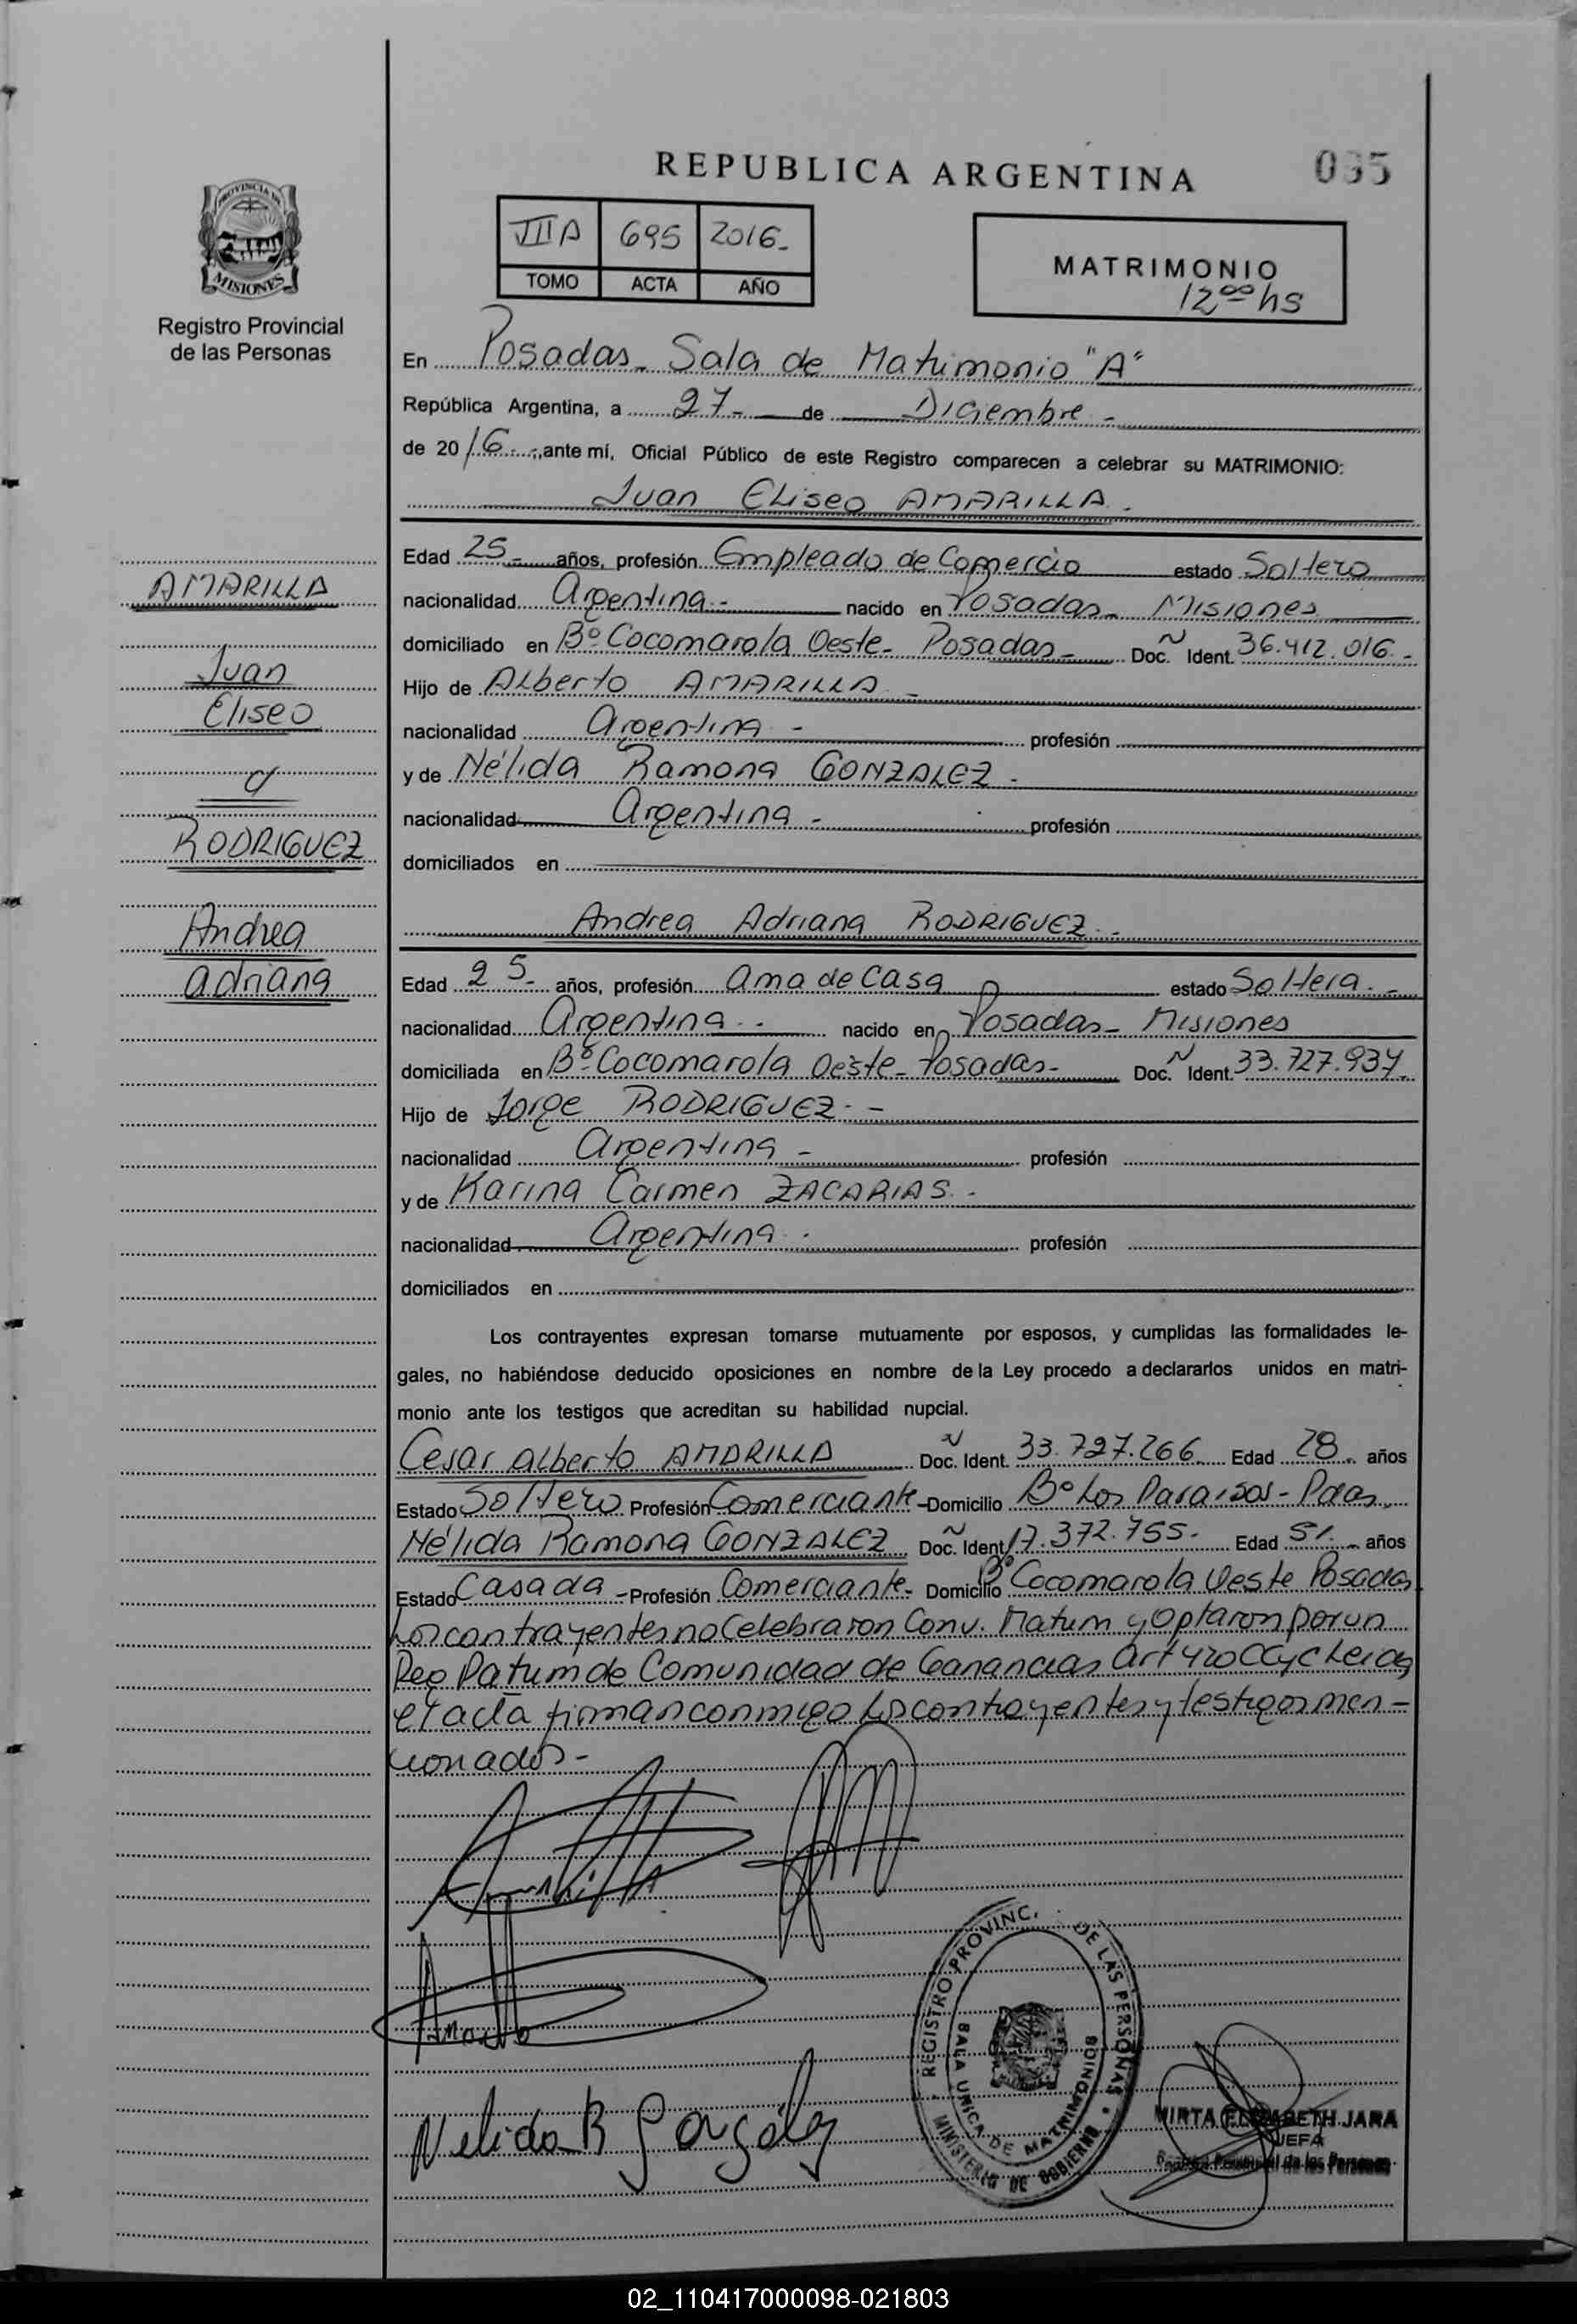 REPUBLICA ARGENTINA
035
PROVINCIA DE
MISIONES
Registro Provincial
de las Personas
VIIA 695 2016-
TOMO ACTA AÑO
MATRIMONIO
12 00 hs
En Posadas- Sala de Matrimonio "A"
República Argentina, a 27- de Diciembre-
de 2016.-, ante mí, Oficial Público de este Registro comparecen a celebrar su MATRIMONIO:
Juan Eliseo AMARILLA.
Edad 25- años, profesión Empleado de Comercio estado Soltero
nacionalidad Argentina- nacido en Posadas- Misiones
domiciliado en Bº Cocomarola Oeste- Posadas- Doc. N Ident. 36.412.016.-
Hijo de Alberto AMARILLA-
nacionalidad Argentina- profesión
y de Nélida Ramona GONZALEZ-
nacionalidad Argentina- profesión
domiciliados en
AMARILLA
Juan
Eliseo
c/
RODRIGUEZ
Andrea
Adriana
Andrea Adriana RODRIGUEZ.-
Edad 25- años, profesión Ama de Casa estado Soltera.-
nacionalidad Argentina.- nacido en Posadas- Misiones
domiciliada en Bº Cocomarola Oeste- Posadas- Doc. N Ident. 33.727.937.
Hijo de Jorge RODRIGUEZ.-
nacionalidad Argentina- profesión
y de Karina Carmen ZACARIAS.-
nacionalidad Argentina. profesión
domiciliados en
Los contrayentes expresan tomarse mutuamente por esposos, y cumplidas las formalidades le-
gales, no habiéndose deducido oposiciones en nombre de la Ley procedo a declararlos unidos en matri-
monio ante los testigos que acreditan su habilidad nupcial.
Cesar Alberto AMARILLA Doc. N Ident. 33.727.266 Edad 28. años
Estado Soltero Profesión Comerciante- Domicilio Bº Los Paraisos- Pdas,
Nélida Ramona GONZALEZ Doc. N Ident. 17.372.755- Edad 51. años
Estado Casada- Profesión Comerciante- Domicilio Bº Cocomarola Oeste Posadas
Los contrayentes no Celebraron Conv. Matrim y Optaron por un
Reg Patrim de Comunidad de Ganancias Art 420 CCyC Leida
el acta firman conmigo los contrayentes y testigos men-
cionados-
Nelida R González
REGISTRO PROVINC. DE LAS PERSONAS
SALA UNICA DE MATRIMONIOS
MINISTERIO DE GOBIERNO
MIRTA ELIZABETH JARA
JEFA
Registro Provincial de las Personas
02_110417000098-021803